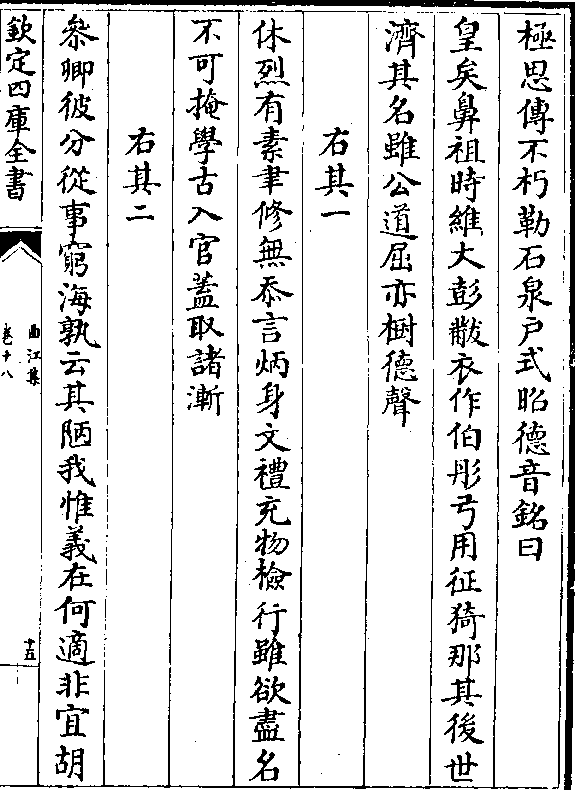 極思傳不朽勒石泉户式昭德音銘曰
皇矣鼻祖時維大彭黻衣作伯彤弓用征猗那其後世
濟其名雖公道屈亦樹德聲
右其一
休烈有素聿修無忝言炳身文禮充物檢行雖欲盡名
不可掩學古入官蓋取諸漸
右其二
叅卿彼分從事窮海孰云其陋我惟義在何適非宜胡
欽定四庫全書
曲江集
卷十八
十五